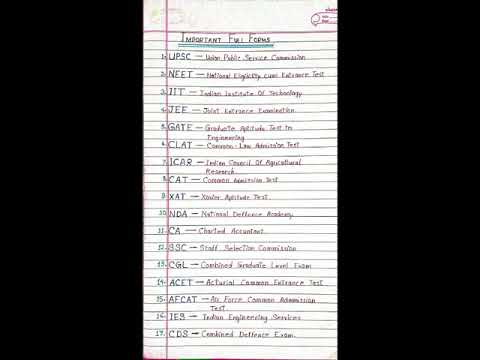 IMPORTANT FULL FORMS
1. UPSC — Union Public Service Commission
2. NEET — National Eligiblity cum Entrance Test
3. IIT — Indian Institute Of Technology
4. JEE — Joint Entrance Examination
5. GATE — Graduate Aptitude Test In
Engineering
6. CLAT — Common-Law Admission Test
7. ICAR — Indian Council Of Agricultural
Research
8. CAT — Common Admission Test
9. XAT — Xavier Aptitude Test
10. NDA — National Defence Academy
11. CA — Charted Accountant
12. SSC — Staff Selection Commission
13. CGL — Combined Graduate Level Exam
14. ACET — Acturial Common Entrance Test
15. AFCAT — Air Force Common Admission
Test
16. IES — Indian Engineering Services
17. CDS — Combined Defence Exam